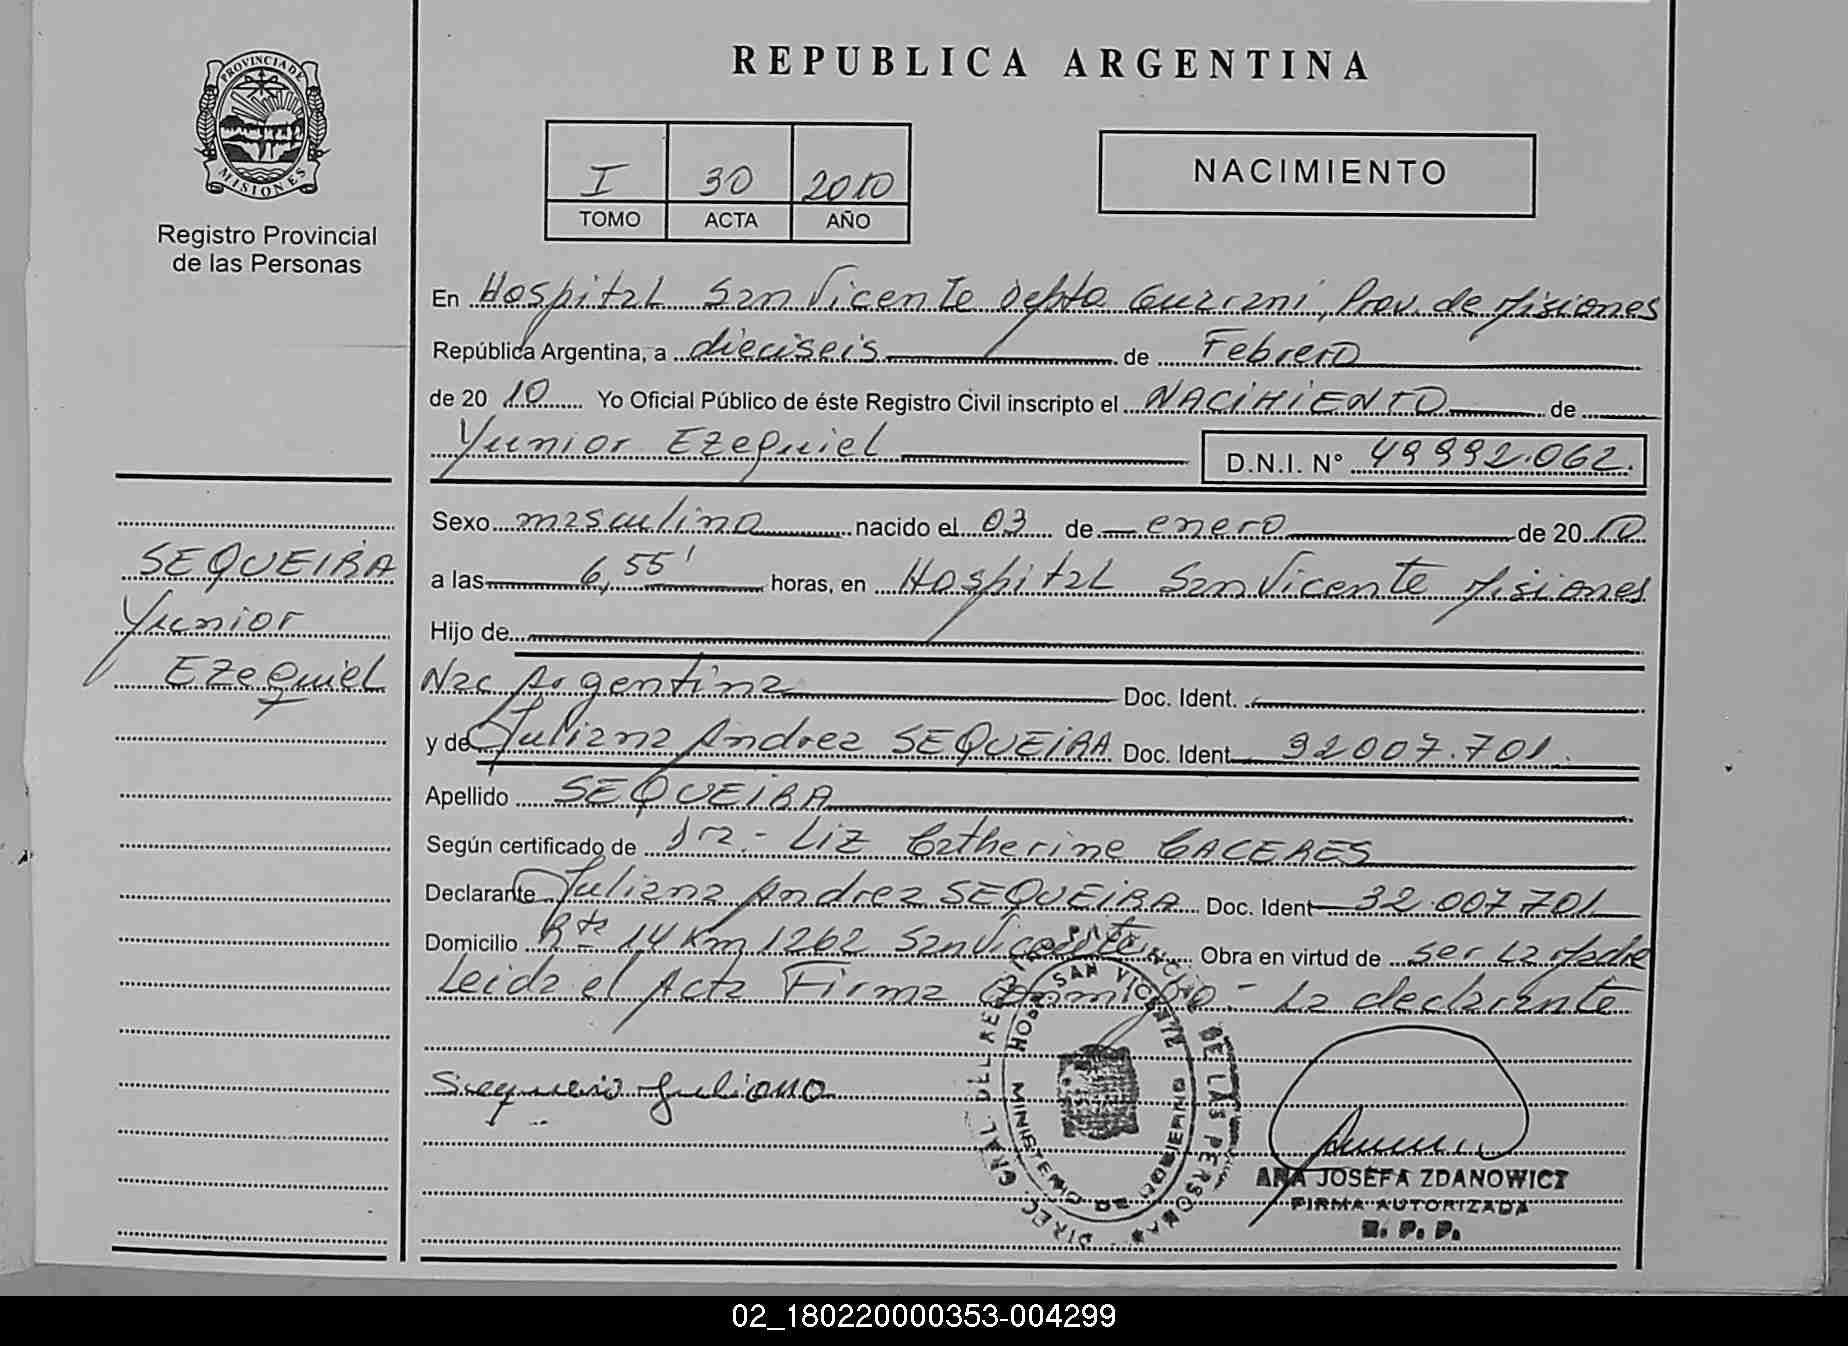 PROVINCIA DE
MISIONES
Registro Provincial
de las Personas
SEQUEIRA
Yunior
Ezequiel
REPUBLICA ARGENTINA
I 30 2010
TOMO ACTA AÑO
NACIMIENTO
En Hospital San Vicente Depto Guarani, Prov. de Misiones
República Argentina, a dieciseis de Febrero
de 2010 Yo Oficial Público de éste Registro Civil inscripto el NACIMIENTO de
Yunior Ezequiel D.N.I. N° 49992.062.
Sexo masculino nacido el 03 de enero de 2010
a las 6,55' horas, en Hospital San Vicente Misiones
Hijo de
Nac Argentina Doc. Ident.
y de Juliana Andrea SEQUEIRA Doc. Ident 32007.701.
Apellido SEQUEIRA
Según certificado de Dra.- Liz Catherine CACERES
Declarante Juliana Andrea SEQUEIRA Doc. Ident 32.007.701
Domicilio Rta 14 Km 1262 San Vicente Obra en virtud de ser la Madre
Leida el Acta Firma Conmigo - La declarante
Sequeira Juliana
DIREC. GRAL DEL REG. PROVINCIAL DE LAS PERSONAS
HOSP. SAN VICENTE
MINISTERIO DE GOBIERNO
ANA JOSEFA ZDANOWICZ
FIRMA AUTORIZADA
R. P. P.
02_180220000353-004299